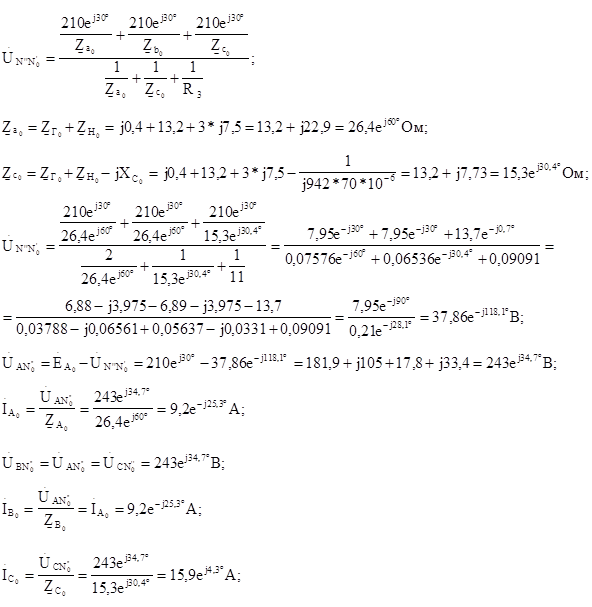 U̇_{N''N'_0} = (210e^{j30°}/Z_{a_0} + 210e^{j30°}/Z_{b_0} + 210e^{j30°}/Z_{c_0}) / (1/Z_{a_0} + 1/Z_{c_0} + 1/R_3);
Z_{a_0} = Z_{Г_0} + Z_{H_0} = j0,4+13,2+3* j7,5 = 13,2+ j22,9 = 26,4e^{j60°} Ом;
Z_{c_0} = Z_{Г_0} + Z_{H_0} − jX_{C_0} = j0,4+13,2+3* j7,5 − 1/(j942*70*10^{-6}) = 13,2+ j7,73 = 15,3e^{j30,4°} Ом;
U̇_{N''N'_0} = (210e^{j30°}/26,4e^{j60°} + 210e^{j30°}/26,4e^{j60°} + 210e^{j30°}/15,3e^{j30,4°}) / (2/26,4e^{j60°} + 1/15,3e^{j30,4°} + 1/11) = (7,95e^{-j30°} + 7,95e^{-j30°} + 13,7e^{-j0,7°}) / (0,07576e^{-j60°} + 0,06536e^{-j30,4°} + 0,09091) =
= (6,88 − j3,975 − 6,89 − j3,975 − 13,7) / (0,03788 − j0,06561 + 0,05637 − j0,0331 + 0,09091) = 7,95e^{-j90°} / 0,21e^{-j28,1°} = 37,86e^{-j118,1°} В;
U̇_{AN'_0} = Ė_{A_0} − U̇_{N''N'_0} = 210e^{j30°} − 37,86e^{-j118,1°} = 181,9 + j105 + 17,8 + j33,4 = 243e^{j34,7°} В;
İ_{A_0} = U̇_{AN'_0} / Z_{A_0} = 243e^{j34,7°} / 26,4e^{j60°} = 9,2e^{-j25,3°} А;
U̇_{BN'_0} = U̇_{AN'_0} = U̇_{CN'_0} = 243e^{j34,7°} В;
İ_{B_0} = U̇_{AN'_0} / Z_{B_0} = İ_{A_0} = 9,2e^{-j25,3°} А;
İ_{C_0} = U̇_{CN'_0} / Z_{C_0} = 243e^{j34,7°} / 15,3e^{j30,4°} = 15,9e^{j4,3°} А;